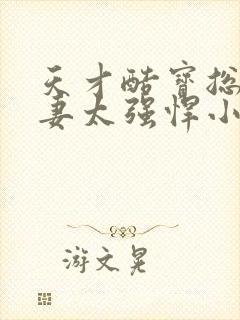 天才酷宝总
妻太强悍小
游文晃